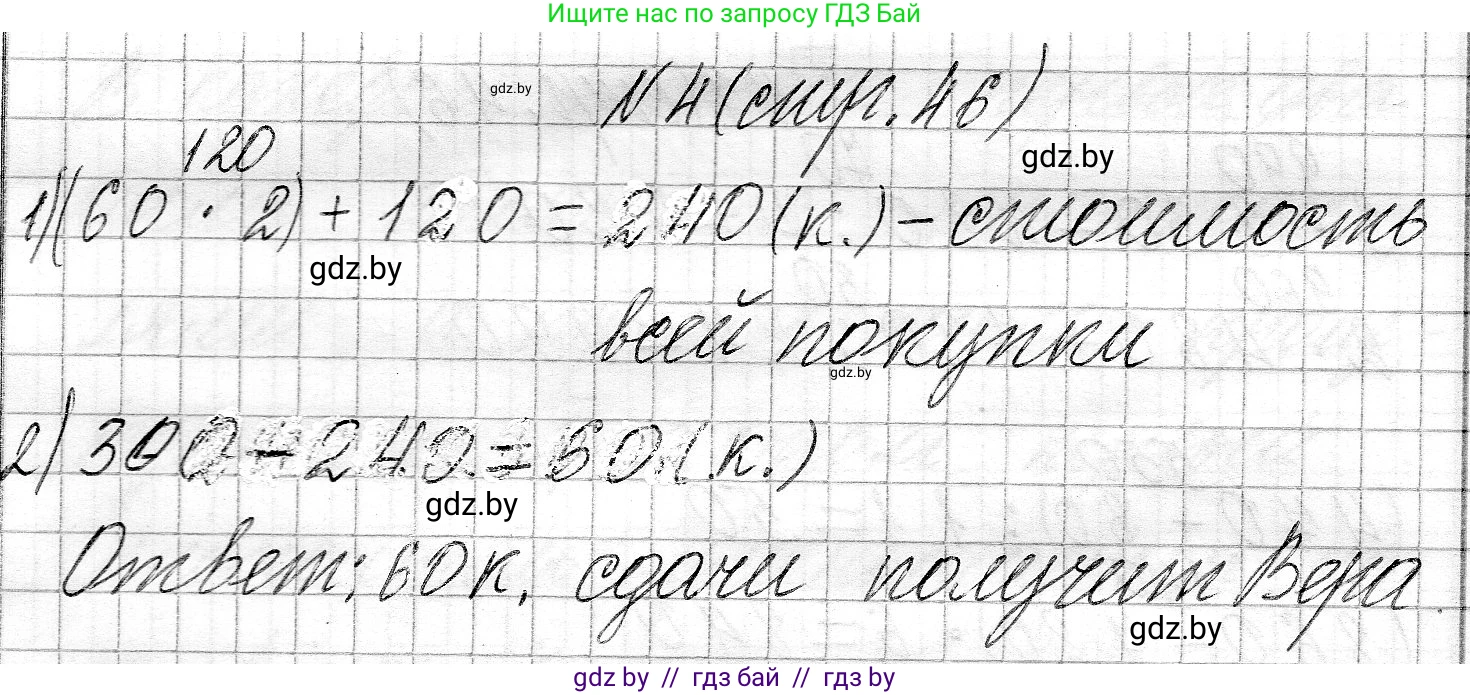 Ищите нас по запросу ГДЗ Бай
gdz.by
N 4 (стр. 46)
gdz.by
120
1) (60 · 2) + 120 = 240 (к.) – стоимость
gdz.by
всей покупки
gdz.by
2) 300 – 240 = 60 (к.)
gdz.by
Ответ: 60 к. сдачи получит Вера.
gdz.by
gdz.by // гдз бай // гдз by